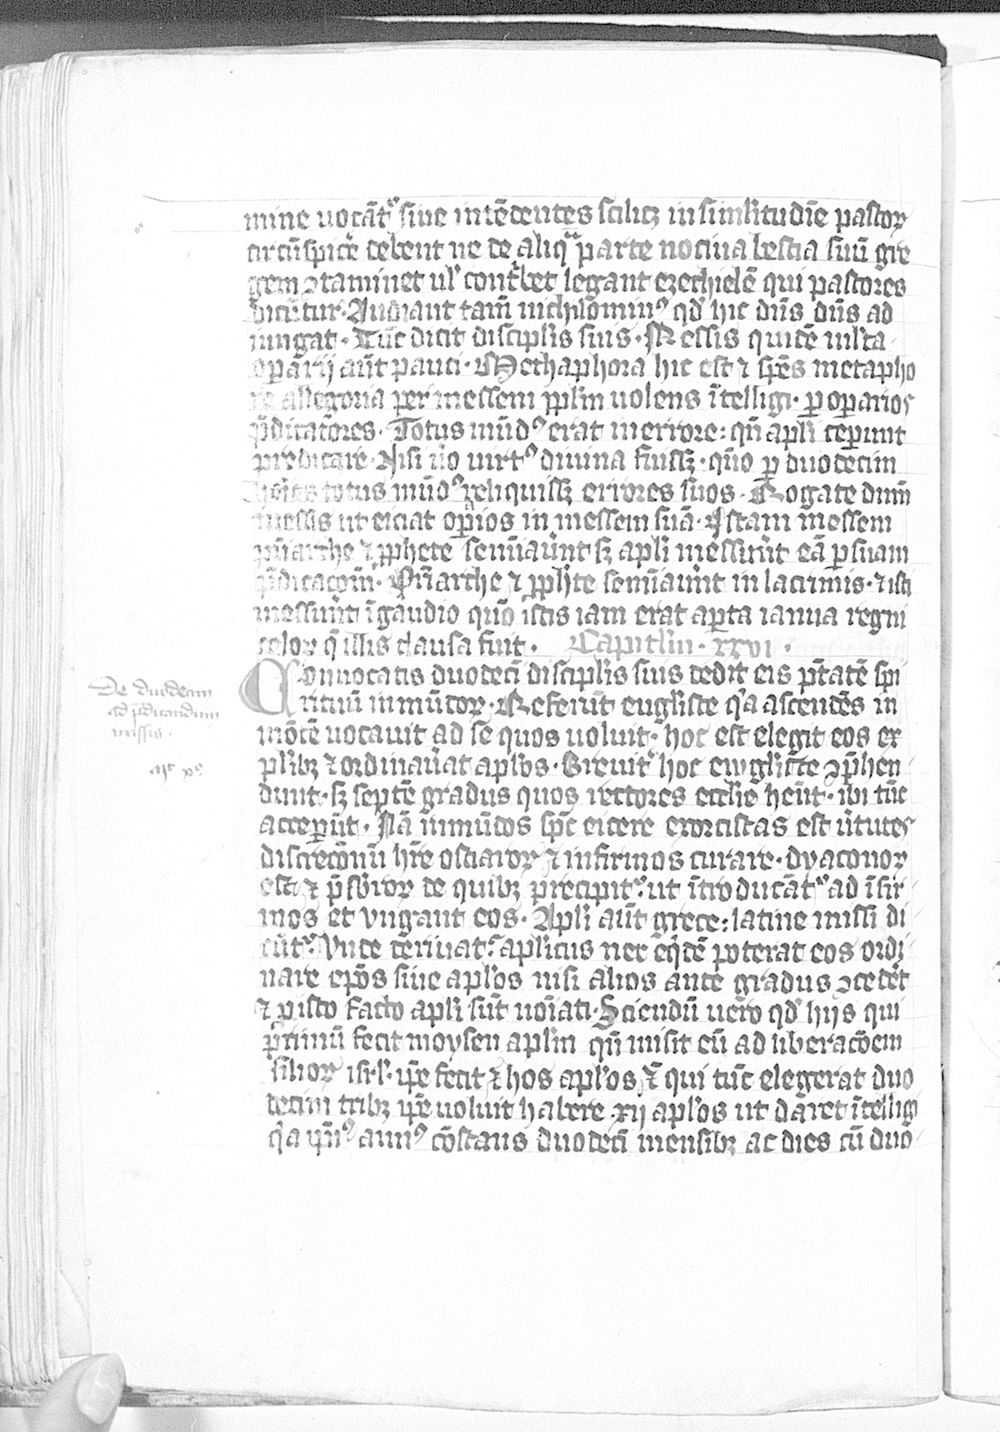 mine uocāt᷑ siue intēdentes scilicꝫ in similitudīe pastoꝝ
circūspice᷑ debent ne de aliqᵃ parte nociua bestia suū gre
gem ɔtaminet ul' cont᷑bet legant ezechielē qui pastores
dicūtur · Audiant tam̄ nichilominꝰ qd' hic dn̄s dn̄s ad
iungat · Tūc dicit discipl'is suis · Messis quidē ml'ta
oꝑarij aūt pauci · Methaphora hic est ⁊ spēs metapho
re allegoria per messem ppl'm uolens ītelligi · ꝑ oꝑarios
p̄dicatores · Totus mūdꝰ erat in errore : qn̄ apl'i ceꝑunt
predicare · Nisi u᷑o uirtꝰ diuina fuissꝫ · quō ꝑ duodecim
hōīes totus mūdꝰ reliquissꝫ errores suos · Rogate dnm̄
messis ut eiciat oꝑarios in messem suā · Istam messem
pri̅arche ⁊ ꝓphete semīauer̄t sꝫ apl'i messuer̄t eā ꝑ suam
p̄dicacōm̄ · Pri̅arche ⁊ ꝓph'te semīauer̄t in lacrimis · ⁊ isti
messuer̄t ī gaudio quō istis iam erat aꝑta ianua regni
celoꝝ q̄ illis clausa fuit · Capitl'm · xxvi ·
Conuocatis duodecī discipl'is suis dedit eis ptātē spi
rituū inmūdoꝝ · Referūt eugl'iste qᵃ ascendēs in
mōtē uocauit ad se quos uoluit · hoc est elegit eos ex
pl'ibꝫ ⁊ ordinauerat apl'os · Breuit᷑ hoc ewgl'iste ɔp̄hen
dunt · sꝫ septē gradus quos rectores eccl'ie hēnt · ibi tūc
acceꝑūt · Nā inmūdos spē eicere exorcistas est u᷑tutes
discrecōnū hr̄e ostiaroꝝ ⁊ infirmos curare · dyaconoꝝ
est ⁊ p̄sb'roꝝ de quibꝫ precipit᷑ ut ītroducāt᷑ ad īfir
mos et vngant eos · Apl'i aūt grece : latine missi di
cūt᷑ · Vnde deriuat᷑ apl'icus nec eq̄dē poterat eos ordi
nare epōs siue apl'os nisi alios ante gradus ɔcedēt
⁊ ꝑ isto facto apl'i sūt noīati · Sciendū uero qd' hijs qui
p̄timū fecit moysen apl'm qn̄ misit eū ad liberacōem
filioꝝ isrl' · ip̄e fecit ⁊ hos apl'os ⁊ qui tūc elegerat duo
decim tribꝫ ip̄e uoluit habere xij apl'os ut daret ītelligi
qᵃ annꝰ cōstans duodecī mensibꝫ ac dies cū duo
De duodecim
ad p̄dicandum
missis ·